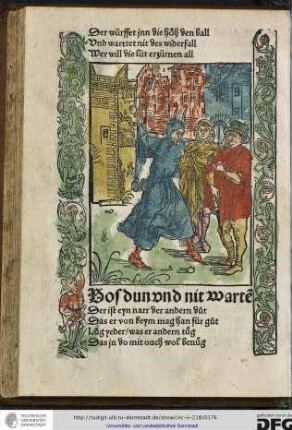 Der würffet jnn die höh den ball
Vnd wartet nit des widerfall
Wer will die lüt erzürnen all
Bos dun vnd nit wartē
Der ist eyn narr der andern důt
Das er von keym mag han für gůt
Lůg yeder / was er andern tůg
Das jn do mit ouch wol benůg
http://tudigit.ulb.tu-darmstadt.de/show/inc-ii-218/0176
Universitäts- und Landesbibliothek Darmstadt
DFG